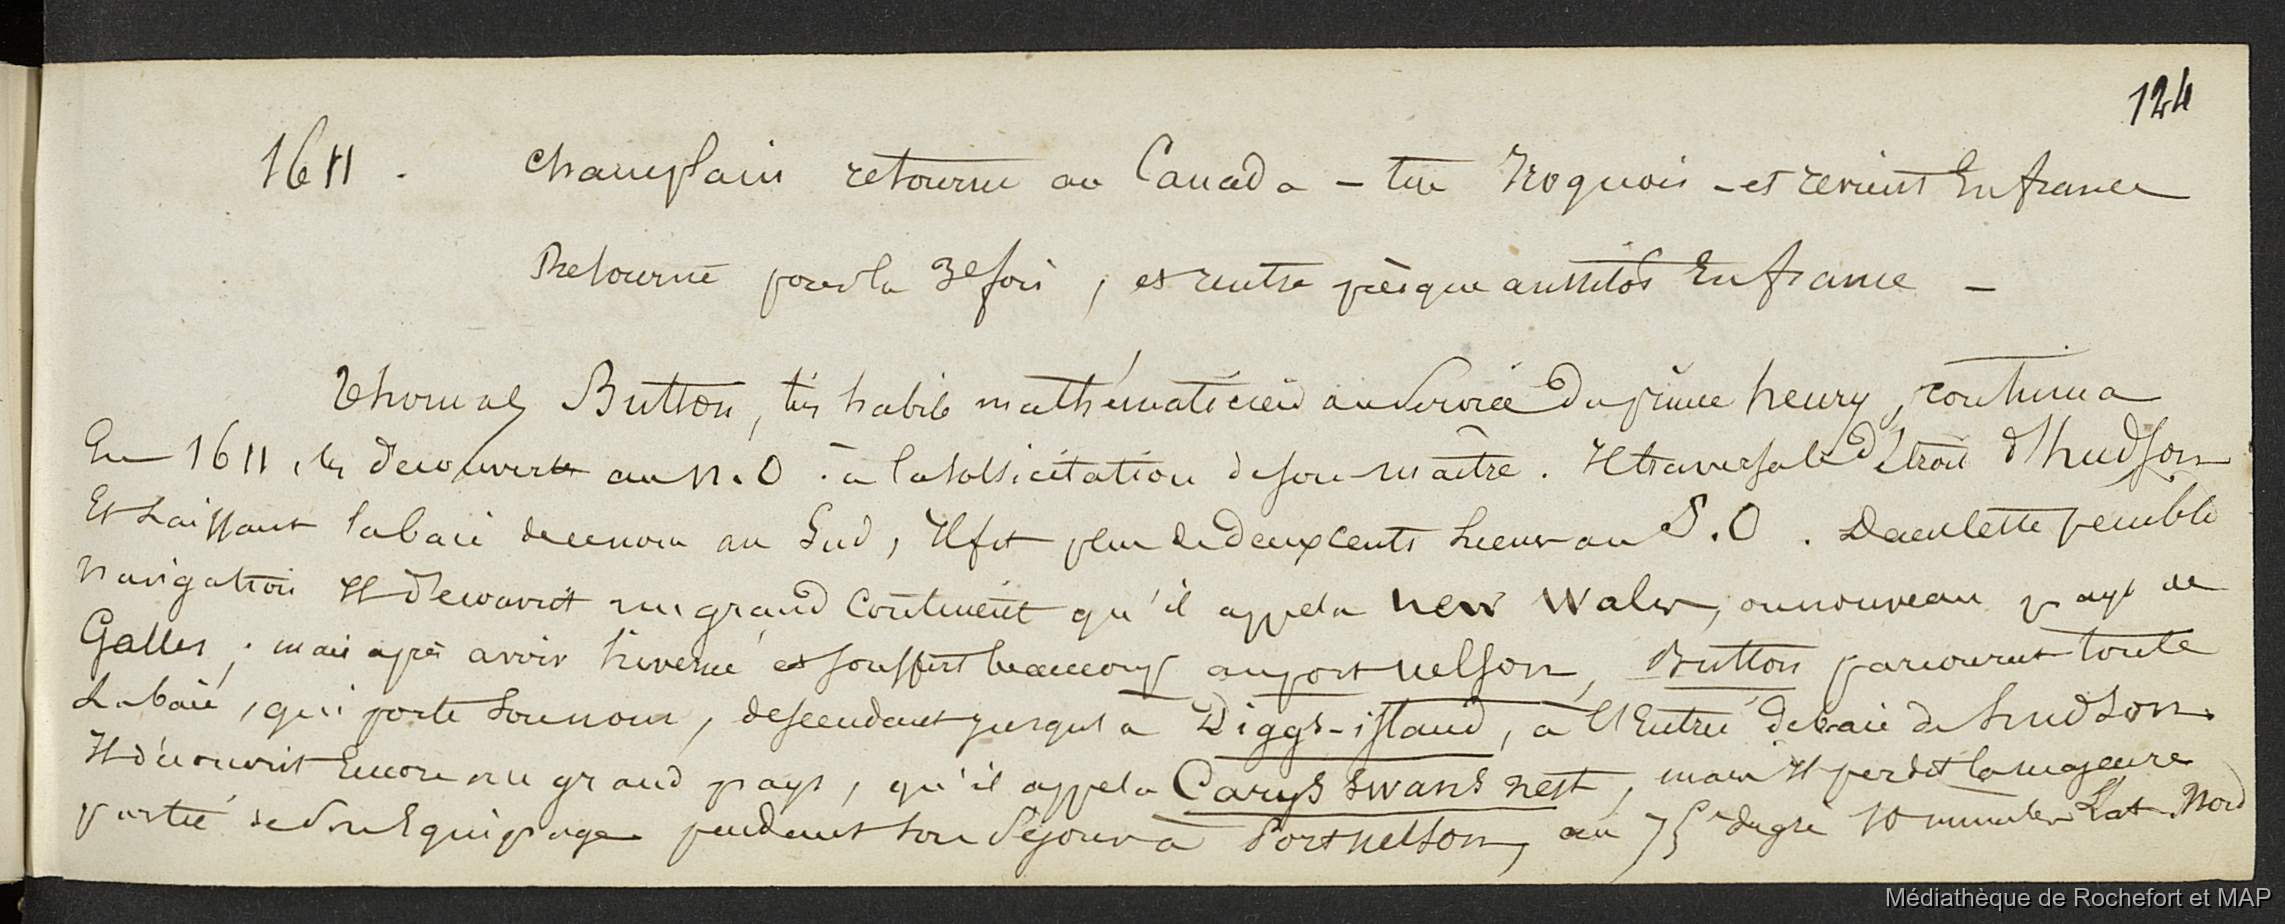 124
1611. Champlain retourne au Canada – tue Iroquois – et revient En france
Retourne pour la 3e fois, et rentre prèsque aussitôt En france –
Thomas Button, très habile mathématicien au Service Du prince henry, continua
En 1611, les découvertes au N.O. à la sollicitation de son maître. Il traversa le Détroit d'hudson
Et Laissant la baie de ce nom au Sud, Il fit plus de Deux cents lieues au S.O. Dans cette penible
Navigation Il découvrit un grand Continent qu'il appela new Wales, ou nouveau pays de
Galles; mais après avoir hiverné et souffert beaucoup au port nelson, Button parcourut toute
La baie, qui porte Son nom, descendant jusqu'à Diggs-island, à l'Entrée de baie de hudson.
Il découvrit Encore un grand pays, qu'il appela Carys swans nest, mais Il perdit la majeure
partie de Son Equipage pendant son Séjour à Port nelson, au 75e degré 10 minutes Lat. Nord
Médiathèque de Rochefort et MAP